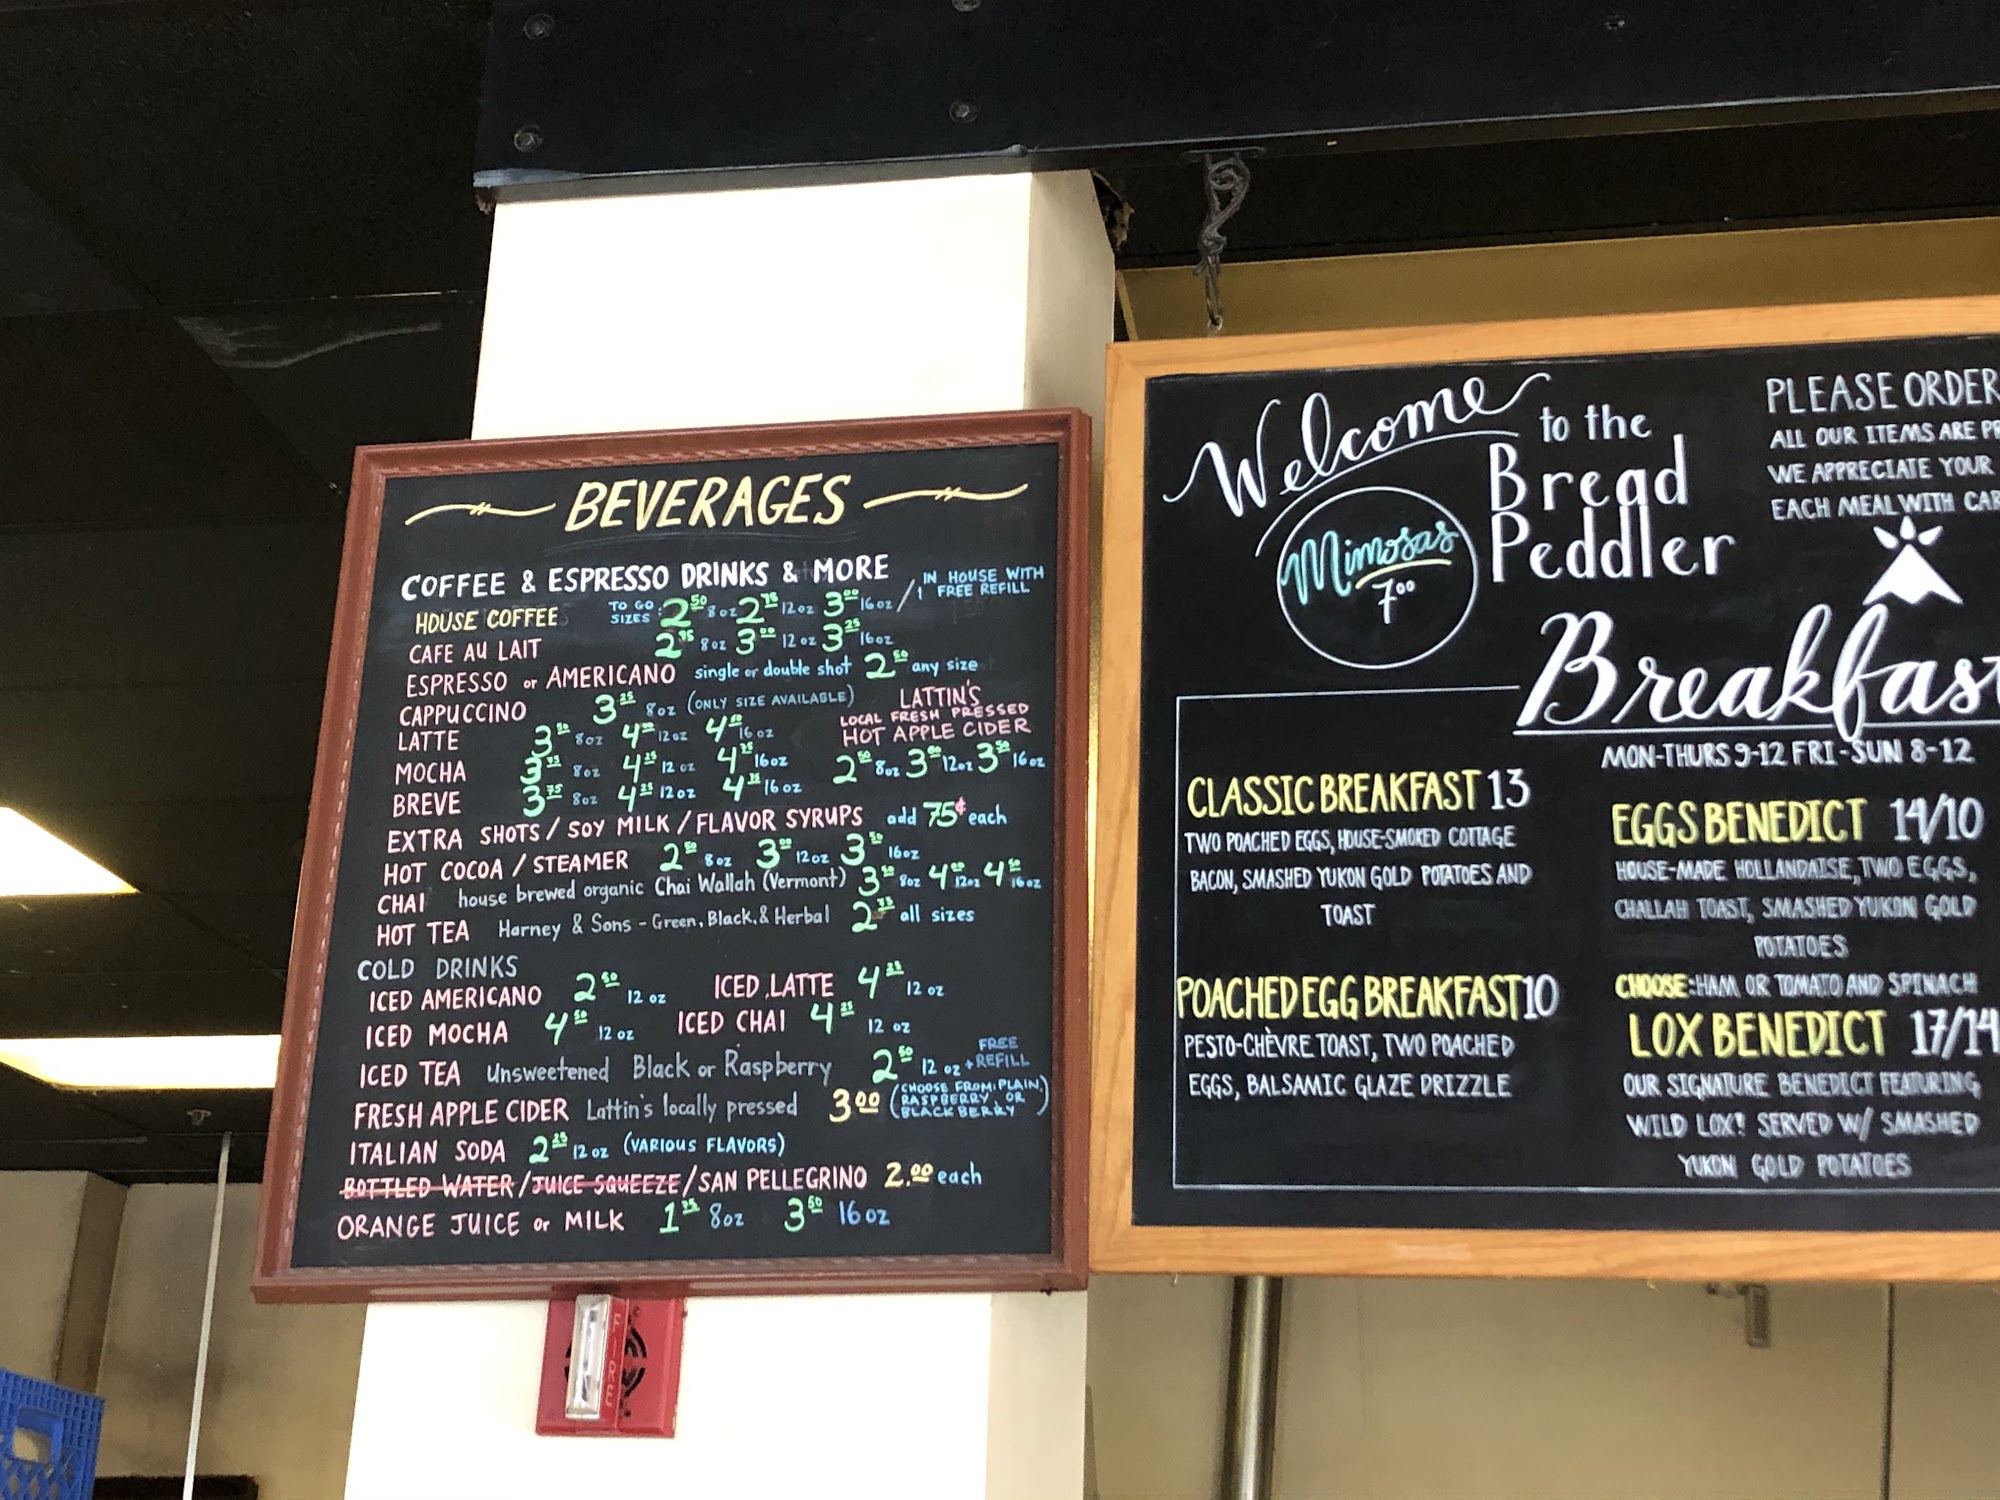 BEVERAGES
COFFEE & ESPRESSO DRINKS & MORE
HOUSE COFFEE TO GO SIZES: 2.50 8oz 2.75 12oz 3.00 16oz / IN HOUSE WITH 1 FREE REFILL
CAFE AU LAIT 2.75 8oz 3.00 12oz 3.25 16oz
ESPRESSO or AMERICANO single or double shot 2.50 any size
CAPPUCCINO 3.25 8oz (ONLY SIZE AVAILABLE)
LATTE 3.50 8oz 4.00 12oz 4.50 16oz
MOCHA 3.75 8oz 4.25 12oz 4.75 16oz
BREVE 3.75 8oz 4.25 12oz 4.75 16oz
LATTIN'S
LOCAL FRESH PRESSED
HOT APPLE CIDER
2.50 8oz 3.00 12oz 3.50 16oz
EXTRA SHOTS / SOY MILK / FLAVOR SYRUPS add 75¢ each
HOT COCOA / STEAMER 2.50 8oz 3.00 12oz 3.50 16oz
CHAI house brewed organic Chai Wallah (Vermont) 3.50 8oz 4.00 12oz 4.50 16oz
HOT TEA Harney & Sons - Green, Black, & Herbal 2.75 all sizes
COLD DRINKS
ICED AMERICANO 2.50 12 oz ICED LATTE 4.25 12 oz
ICED MOCHA 4.50 12 oz ICED CHAI 4.25 12 oz
ICED TEA Unsweetened Black or Raspberry 2.50 12 oz + FREE REFILL
FRESH APPLE CIDER Lattin's locally pressed 3.00 (CHOOSE FROM: PLAIN, RASPBERRY, OR BLACKBERRY)
ITALIAN SODA 2.25 12oz (VARIOUS FLAVORS)
BOTTLED WATER / JUICE SQUEEZE / SAN PELLEGRINO 2.00 each
ORANGE JUICE or MILK 1.75 8oz 3.50 16oz
FIRE
Welcome to the
Bread
Peddler
Mimosas
7.00
PLEASE ORDER
ALL OUR ITEMS ARE
WE APPRECIATE YOUR
EACH MEAL WITH
Breakfast
MON-THURS 9-12 FRI-SUN 8-12
CLASSIC BREAKFAST 13
TWO POACHED EGGS, HOUSE-SMOKED COTTAGE
BACON, SMASHED YUKON GOLD POTATOES AND
TOAST
POACHED EGG BREAKFAST 10
PESTO-CHÈVRE TOAST, TWO POACHED
EGGS, BALSAMIC GLAZE DRIZZLE
EGGS BENEDICT 14/10
HOUSE-MADE HOLLANDAISE, TWO EGGS,
CHALLAH TOAST, SMASHED YUKON GOLD
POTATOES
CHOOSE: HAM OR TOMATO AND SPINACH
LOX BENEDICT 17/14
OUR SIGNATURE BENEDICT FEATURING
WILD LOX! SERVED W/ SMASHED
YUKON GOLD POTATOES